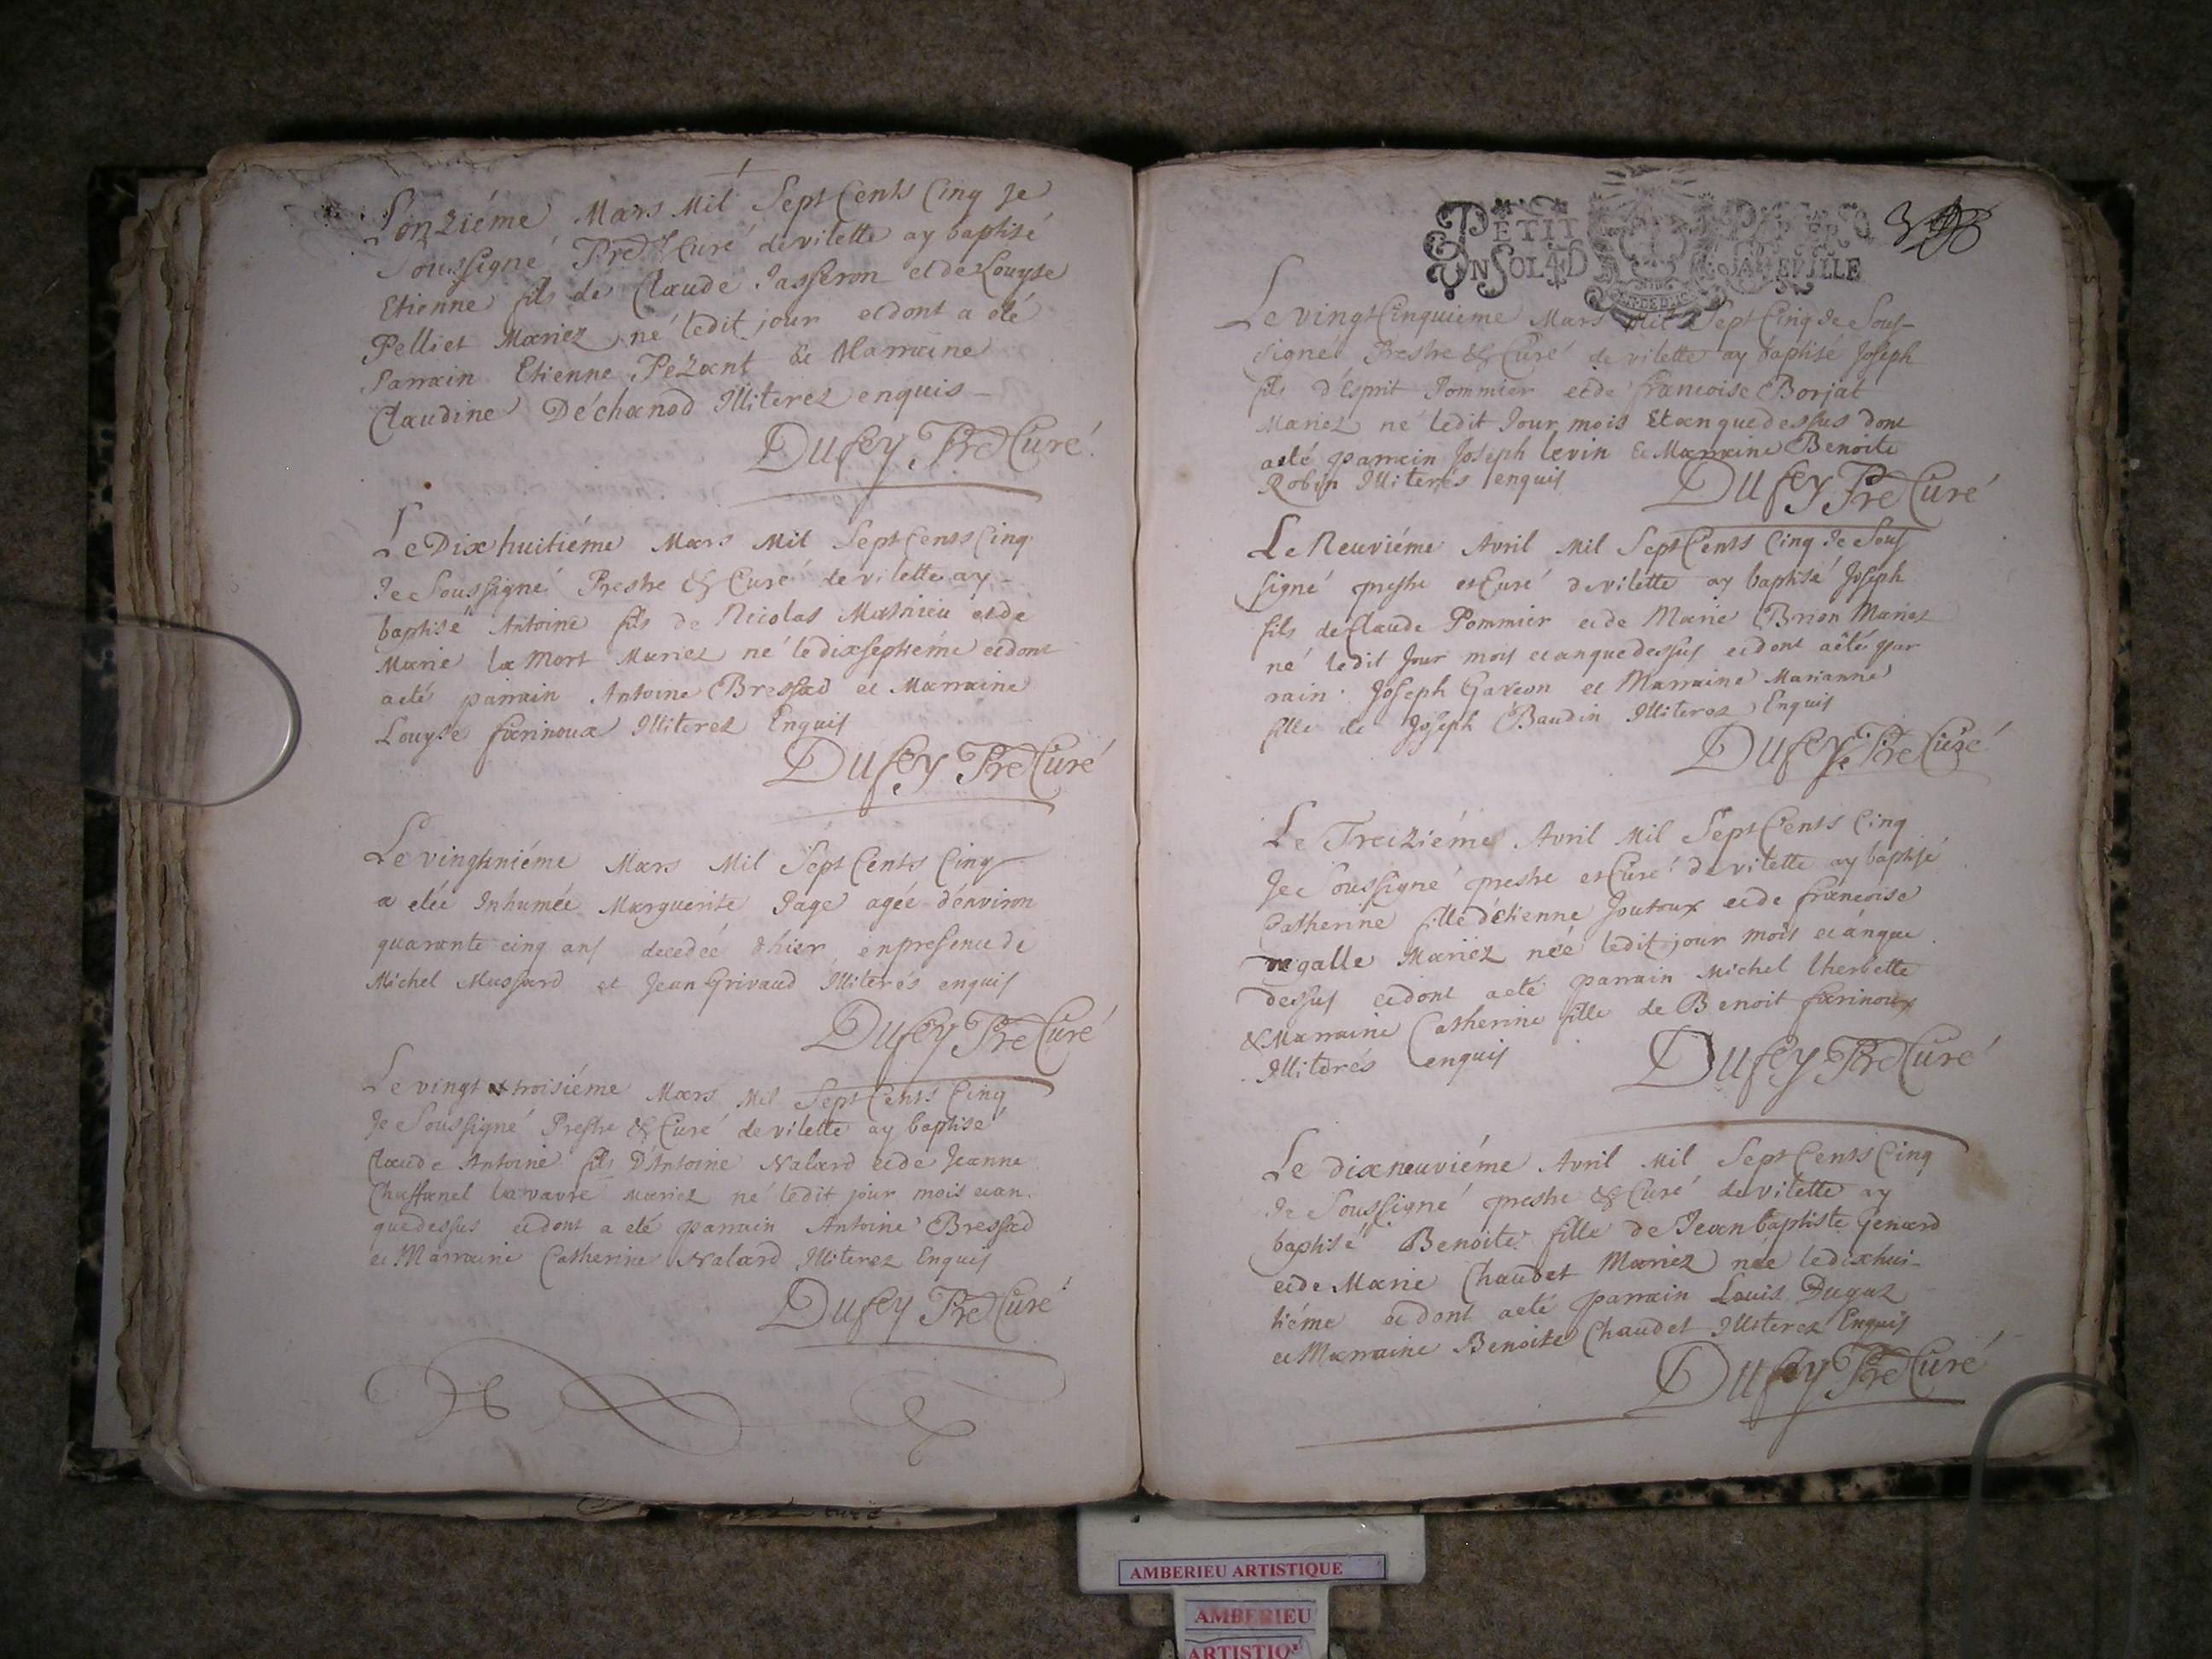 L'onziéme Mars Mil Sept Cents Cinq Je
Soussigné Pre & Curé de vilette ay baptisé
Etienne fils de Claude Jasseron et de Louyse
Pelliet Mariez né ledit jour et dont a été
Parrain Etienne Pezant & Marraine
Claudine Déchanod Illiterez enquis
Dufey Pre Curé
Le Dix huitiéme Mars Mil Sept Cents Cinq
Je Soussigné Prestre & Curé de vilette ay
baptisé Antoine fils de Nicolas Mathieu et de
Marie la Mort Mariez né le dixseptiéme et dont
a eté parrain Antoine Bressad et Marraine
Louyse farinoux Illiterez Enquis
Dufey Pre Curé
Le vingtuniéme Mars Mil Sept Cents Cinq
a etée Inhumée Marguerite Page agée d'environ
quarante cinq ans decedée d'hier en presence de
Michel Mussard et Jean Grivaud Illiterés enquis
Dufey Pre Curé
Le vingt troisiéme Mars Mil Sept Cents Cinq
Je Soussigné Prestre & Curé de vilette ay baptisé
Claude Antoine fils D'Antoine Nalard et de Jeanne
Chaffanel la vavre Mariez né ledit jour mois et an
que dessus et dont a eté parrain Antoine Bressad
et Marraine Catherine Nalard Illiterez Enquis
Dufey Pre Curé
PETIT PAPIER
UN SOL 4 D LA FEUILLE
Le vingt Cinquieme Mars Mil Sept Cinq Je Sous-
signé Prestre & Curé de vilette ay baptisé Joseph
fils d'Esprit Pommier et de francoise Borjat
Mariez né ledit Jour mois Et an que dessus dont
a eté parrain Joseph levin & Marraine Benoite
Robin Illiterés enquis
Dufey Pre Curé
Le Neuviéme Avril Mil Sept Cents Cinq Je Sous
signé prestre et Curé de vilette ay baptisé Joseph
fils de Claude Pommier et de Marie Brion Mariez
né ledit Jour mois et an que dessus et dont a eté par
rain Joseph Gaveon et Marraine Marianne
fille de Joseph Baudin Illiterez Enquis
Dufey Pre Curé
Le Treiziéme Avril Mil Sept Cents Cinq
Je Soussigné prestre et Curé de vilette ay baptisé
Catherine fille d'etienne Joutoux et de francoise
Mariez née ledit jour mois et an que
dessus et dont a eté parrain Michel lherbette
& Marraine Catherine fille de Benoit farinoux
Illiterés enquis
Dufey Pre Curé
Le dixneuviéme Avril Mil Sept Cents Cinq
Je Soussigné prestre & Curé de vilette ay
baptisé Benoite fille de Jean baptiste Genard
et de Marie Chaudet Mariez née le dixhui-
tiéme et dont a eté parrain Louis Duguz
et Marraine Benoite Chaudet Illiterez Enquis
Dufey Pre Curé
AMBERIEU ARTISTIQUE
AMBERIEU
ARTISTIQ